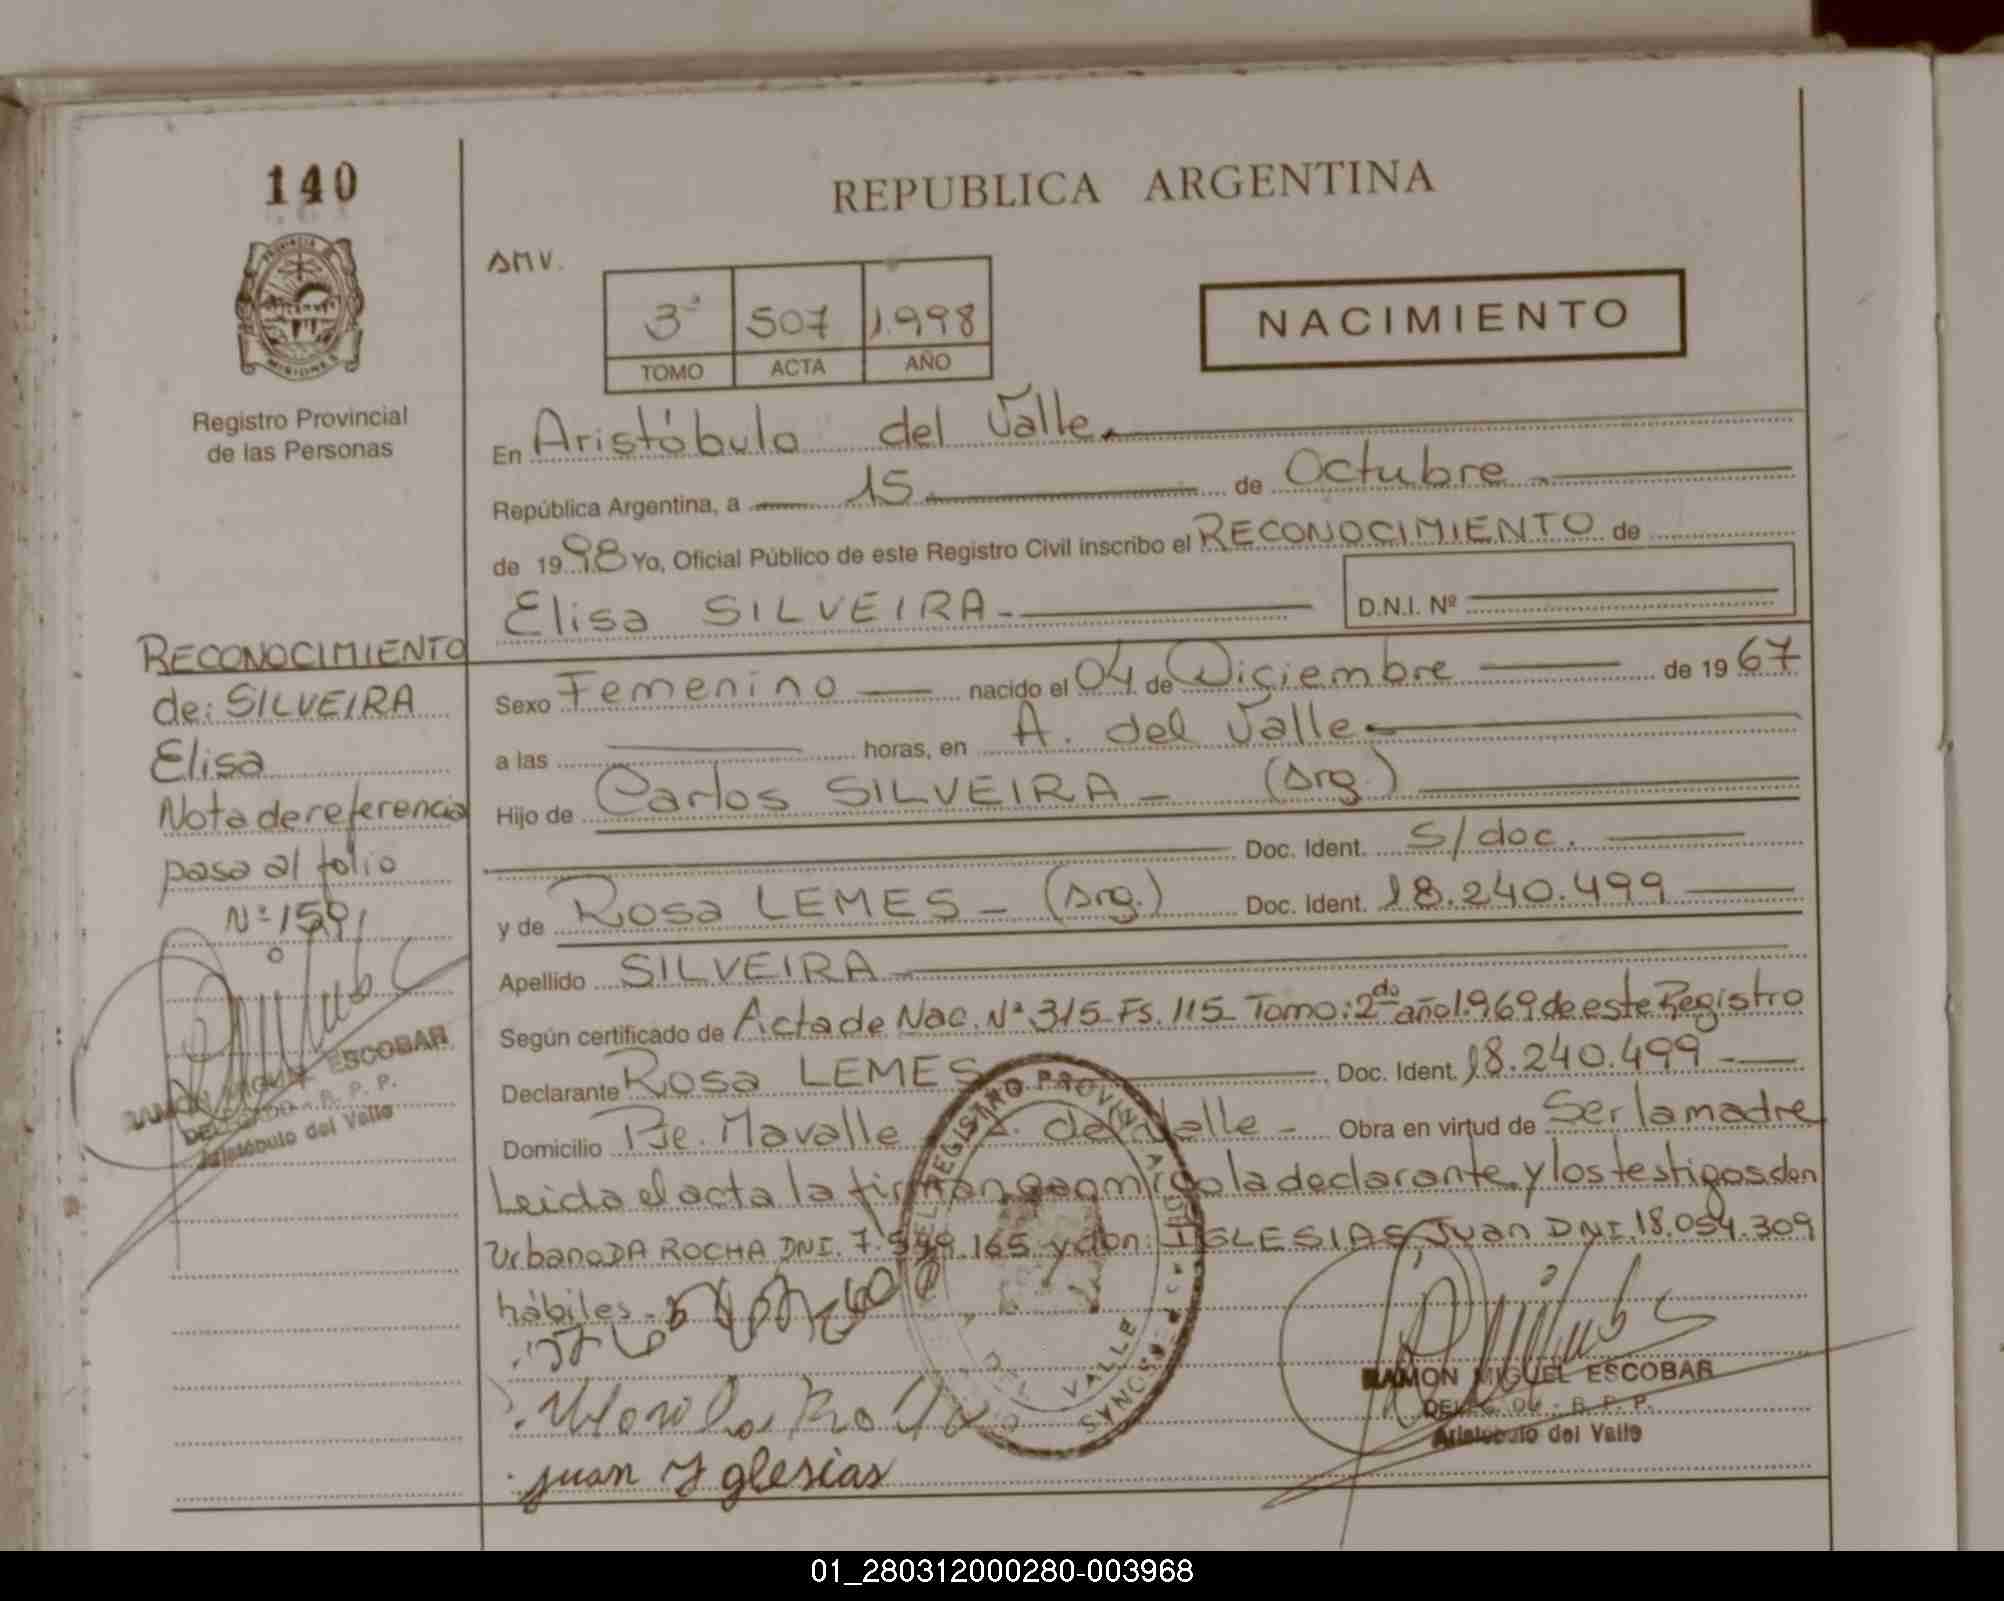 140
REPUBLICA ARGENTINA
AMV.
3ª 507 1.998
TOMO ACTA AÑO
NACIMIENTO
PROVINCIA DE MISIONES
Registro Provincial
de las Personas
En Aristóbulo del Valle.
República Argentina, a 15 de Octubre
de 1998 Yo, Oficial Público de este Registro Civil inscribo el RECONOCIMIENTO de
Elisa SILVEIRA-
D.N.I. Nº
RECONOCIMIENTO
de: SILVEIRA
Elisa
Nota de referencia
pasa al folio
Nº 159
RAMON MIGUEL ESCOBAR
DELEGADO - R. P. P.
Aristóbulo del Valle
Sexo Femenino nacido el 04 de Diciembre de 1967
a las horas, en A. del Valle
Hijo de Carlos SILVEIRA - (Arg.)
Doc. Ident. S/doc.
y de Rosa LEMES - (Arg.) Doc. Ident. 18.240.499
Apellido SILVEIRA
Según certificado de Acta de Nac. Nº 315 - Fs. 115 - Tomo: 2do año 1.969 de este Registro
Declarante Rosa LEMES Doc. Ident. 18.240.499 -
Domicilio Pje. Mavalle A. del Valle - Obra en virtud de Ser la madre
Leida el acta la firman conmigo la declarante y los testigos don
Urbano DA ROCHA DNI. 7.549.165 y don: IGLESIAS, Juan DNI. 18.054.309
hábiles.-
juan Yglesias
REGISTRO PROVINCIAL DE LAS PERSONAS
VALLE
RAMON MIGUEL ESCOBAR
DELEGADO - R. P. P.
Aristóbulo del Valle
01_280312000280-003968